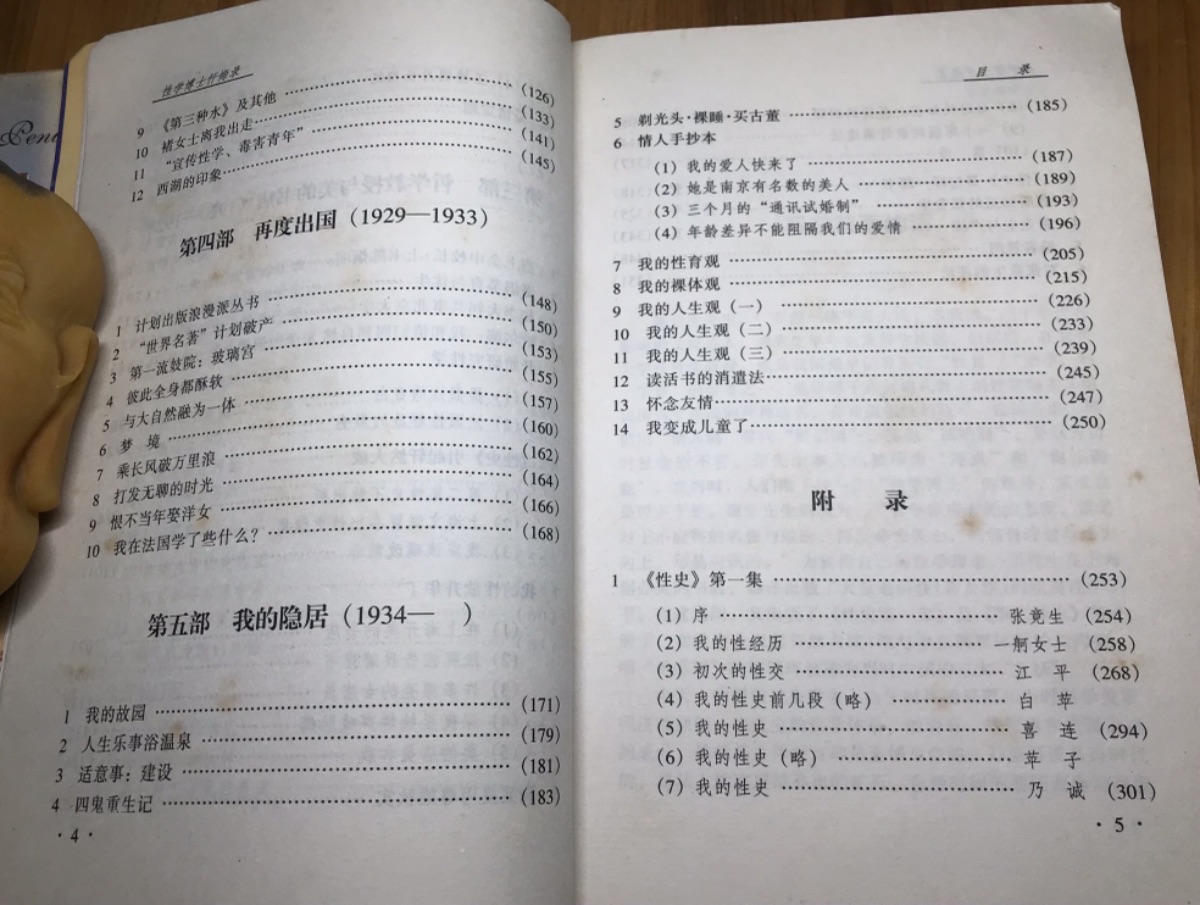 性学博士忏悔录
9 《第三种水》及其他 ……………… (126)
10 褚女士离我出走 ……………… (133)
11 “宣传性学、毒害青年” ……………… (141)
12 西湖的印象 ……………… (145)
第四部 再度出国(1929—1933)
1 计划出版浪漫派丛书 ……………… (148)
2 “世界名著”计划破产 ……………… (150)
3 第一流妓院：玻璃宫 ……………… (153)
4 彼此全身都酥软 ……………… (155)
5 与大自然融为一体 ……………… (157)
6 梦 境 ……………… (160)
7 乘长风破万里浪 ……………… (162)
8 打发无聊的时光 ……………… (164)
9 恨不当年娶洋女 ……………… (166)
10 我在法国学了些什么？ ……………… (168)
第五部 我的隐居(1934— )
1 我的故园 ……………… (171)
2 人生乐事浴温泉 ……………… (179)
3 适意事：建设 ……………… (181)
4 四鬼重生记 ……………… (183)
· 4 ·
目 录
5 剃光头·裸睡·买古董 ……………… (185)
6 情人手抄本
(1) 我的爱人快来了 ……………… (187)
(2) 她是南京有名数的美人 ……………… (189)
(3) 三个月的“通讯试婚制” ……………… (193)
(4) 年龄差异不能阻隔我们的爱情 ……………… (196)
7 我的性育观 ……………… (205)
8 我的裸体观 ……………… (215)
9 我的人生观（一） ……………… (226)
10 我的人生观（二） ……………… (233)
11 我的人生观（三） ……………… (239)
12 读活书的消遣法 ……………… (245)
13 怀念友情 ……………… (247)
14 我变成儿童了 ……………… (250)
附 录
1 《性史》第一集 ……………… (253)
(1) 序 ……………… 张竞生 (254)
(2) 我的性经历 ……………… 一舸女士 (258)
(3) 初次的性交 ……………… 江 平 (268)
(4) 我的性史前几段（略） ……………… 白 苹
(5) 我的性史 ……………… 喜 连 (294)
(6) 我的性史（略） ……………… 苹 子
(7) 我的性史 ……………… 乃 诚 (301)
· 5 ·